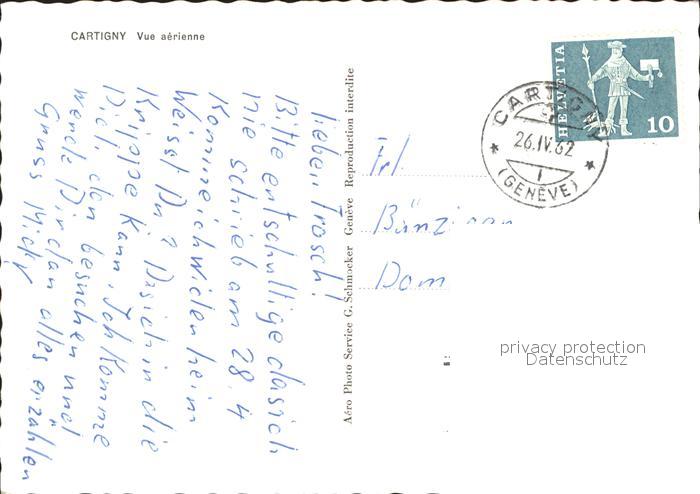 CARTIGNY Vue aérienne
lieben Frosch!
Bitte entschultige das ich
nie schrieb am 28.4
Komme ich wieder heim
Weisst Du? Das ich in die
Krippe kann, Ich komme
Dich den besuchen und
werde Dir dan alles erzählen
Gruss Micky
Aéro Photo Service G. Schmocker Genève Reproduction interdite
Frl.
Dom
HELVETIA
10
CARTIGNY
26.IV.62
1
(GENÈVE)
privacy protection
Datenschutz